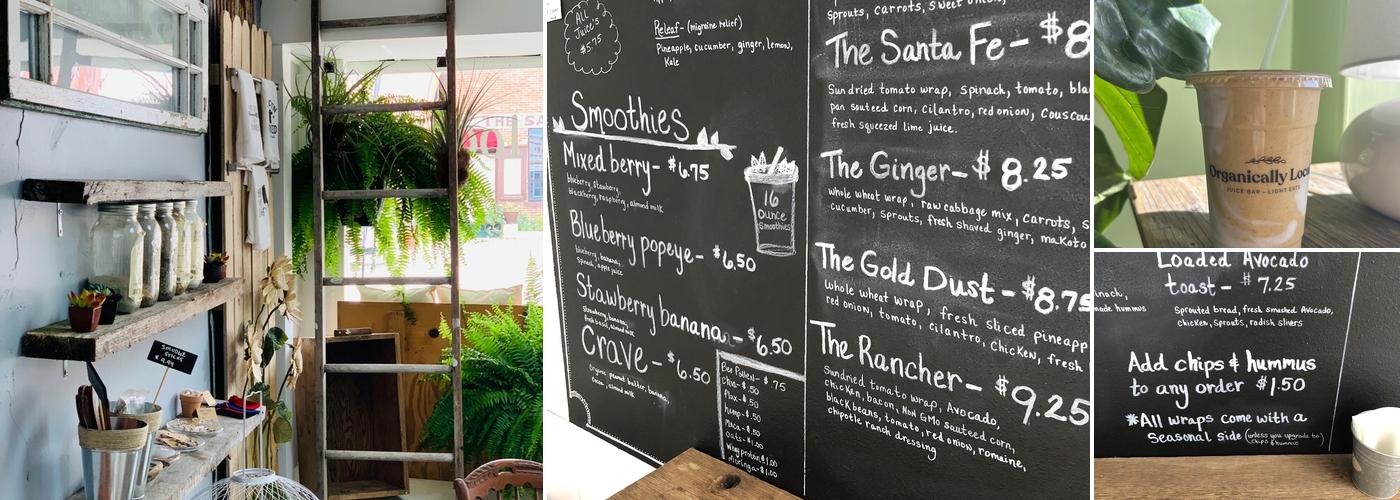 All
Juice's
$5.75
Releaf- (migraine relief)
Pineapple, cucumber, ginger, lemon,
Kale
Smoothies
Mixed berry- $6.75
blueberry, strawberry,
blackberry, raspberry, almond milk
16
ounce
Smoothies
Blueberry popeye- $6.50
blueberry, banana,
Spinach, apple juice
Stawberry banana- $6.50
Strawberry, banana,
fresh basil, almond milk
Crave- $6.50
Organic peanut butter, banana,
Cacao, almond milk
Bee Pollen- $.75
Chia- $.50
Flax- $.50
hemp- $.50
Maca- $.50
Oats- $1.00
Whey protein $1.00
moringa- $1.00
Sprouts, carrots, sweet onion,
The Santa Fe- $8
Sundried tomato wrap, spinach, tomato,
pan sauteed corn, cilantro, red onion, Couscou
fresh squeezed lime juice.
The Ginger- $8.25
Whole wheat wrap, raw cabbage mix, carrots, s
cucumber, sprouts, fresh shaved ginger, makoto
The Gold Dust- $8.75
Whole wheat wrap, fresh sliced pineapp
red onion, tomato, cilantro, chicken, fresh
The Rancher- $9.25
Sundried tomato wrap, Avocado,
chicken, bacon, Non GMO sauteed corn,
black beans, tomato, red onion, romaine,
chipotle ranch dressing
Organically Loc
JUICE BAR - LIGHT EATS
Loaded Avocado
toast- $7.25
Sprouted bread, fresh smashed Avocado,
chicken, sprouts, radish slivers
inach,
made hummus
Add chips & hummus
to any order $1.50
*All wraps come with a
Seasonal side (unless you upgrade to)
chips & hummus